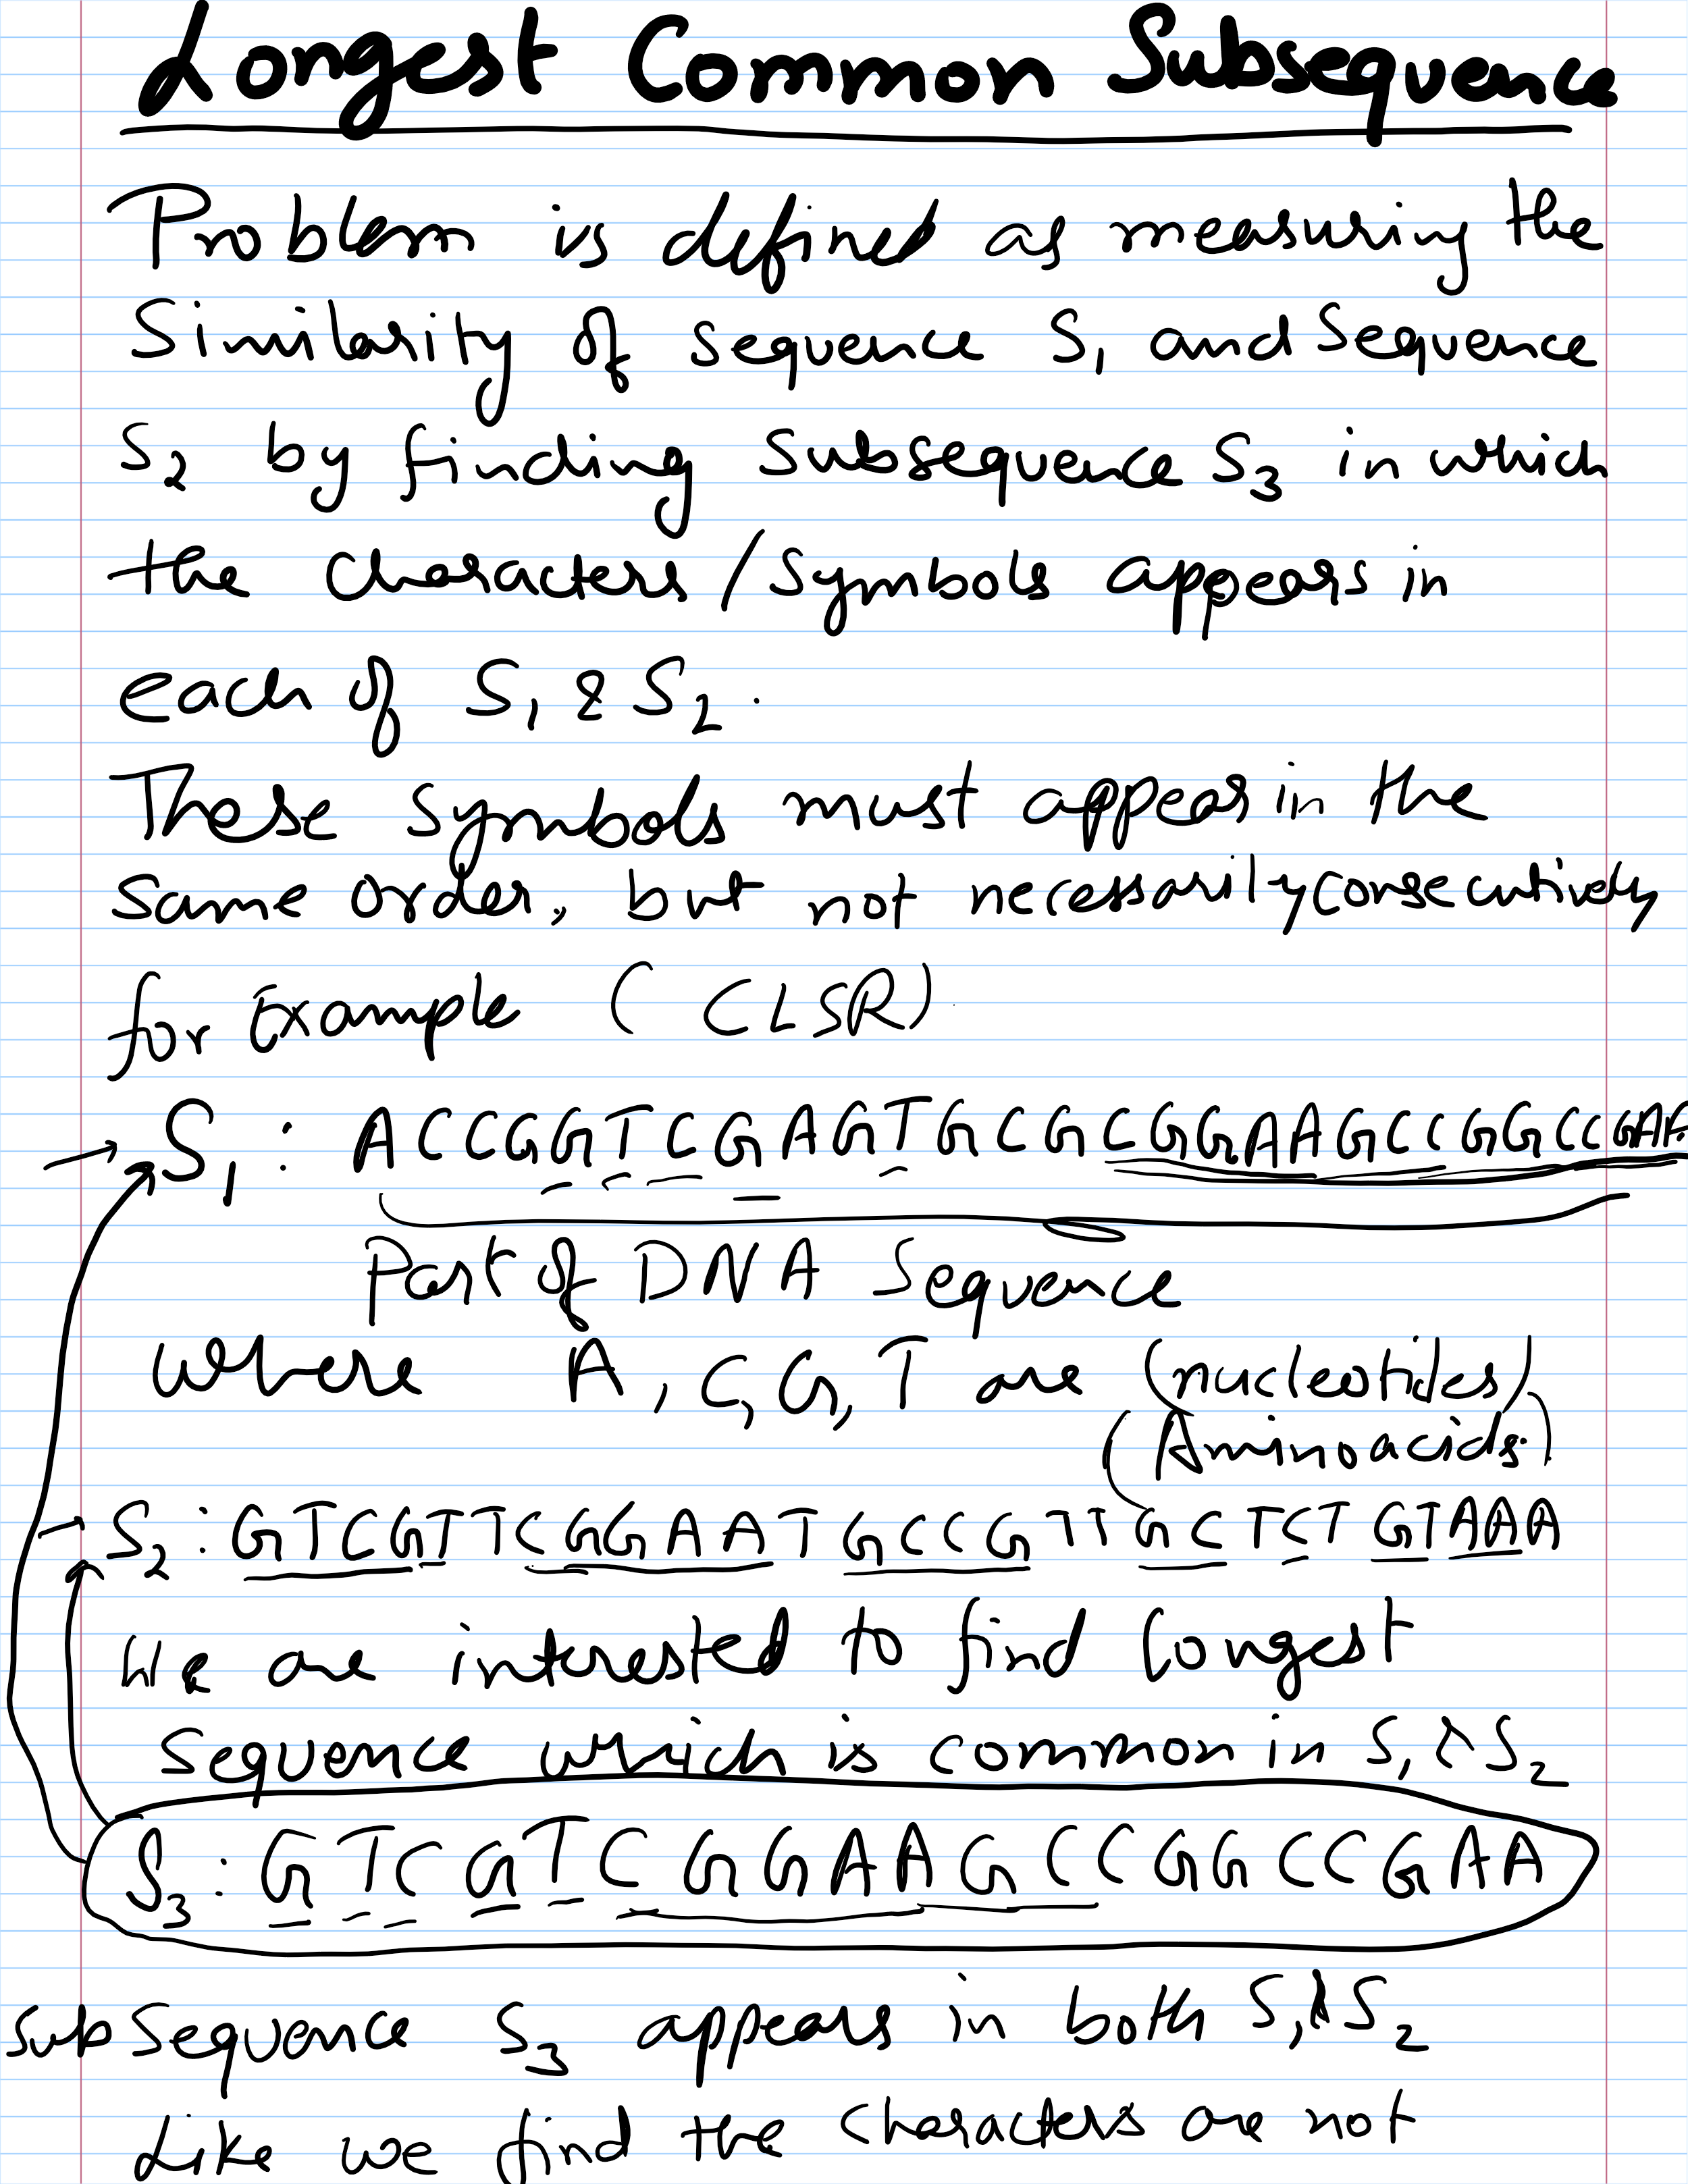 Longest Common Subsequence
Problem is defined as measuring the
Similarity of sequence S1 and Sequence
S2 by finding Subsequence S3 in which
the characters/Symbols appears in
each of S1 & S2.
These symbols must appear in the
same order, but not necessarily consecutively
for Example (CLSR)
S1: ACCGGTCGAGTGCGCGGAAGCCGGCCGAA
Part of DNA Sequence
where A, C, G, T are (nucleotides)
(Aminoacids)
S2: GTCGTTCGGAATGCCGTTGCTCTGTAAA
We are interested to find longest
sequence which is common in S1 & S2
S3: GTCGTCGGAAGCCGGCCGAA
subsequence S3 appears in both S1 & S2
Like we find the characters are not